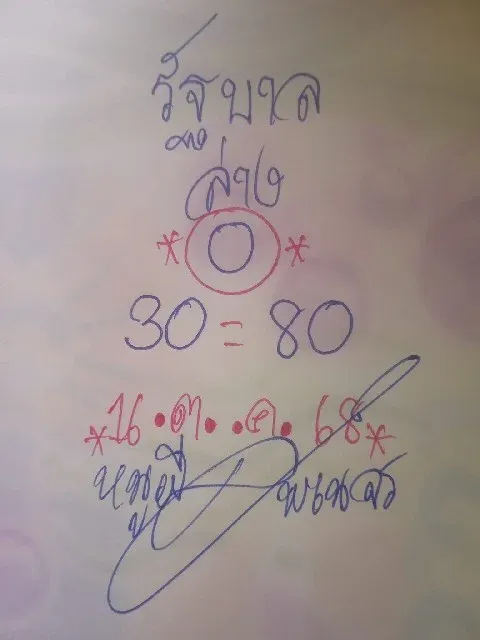 รัฐบาล
ล่าง
* 0 *
30 = 80
*16 • ต • • ค • 68*
พเนจร